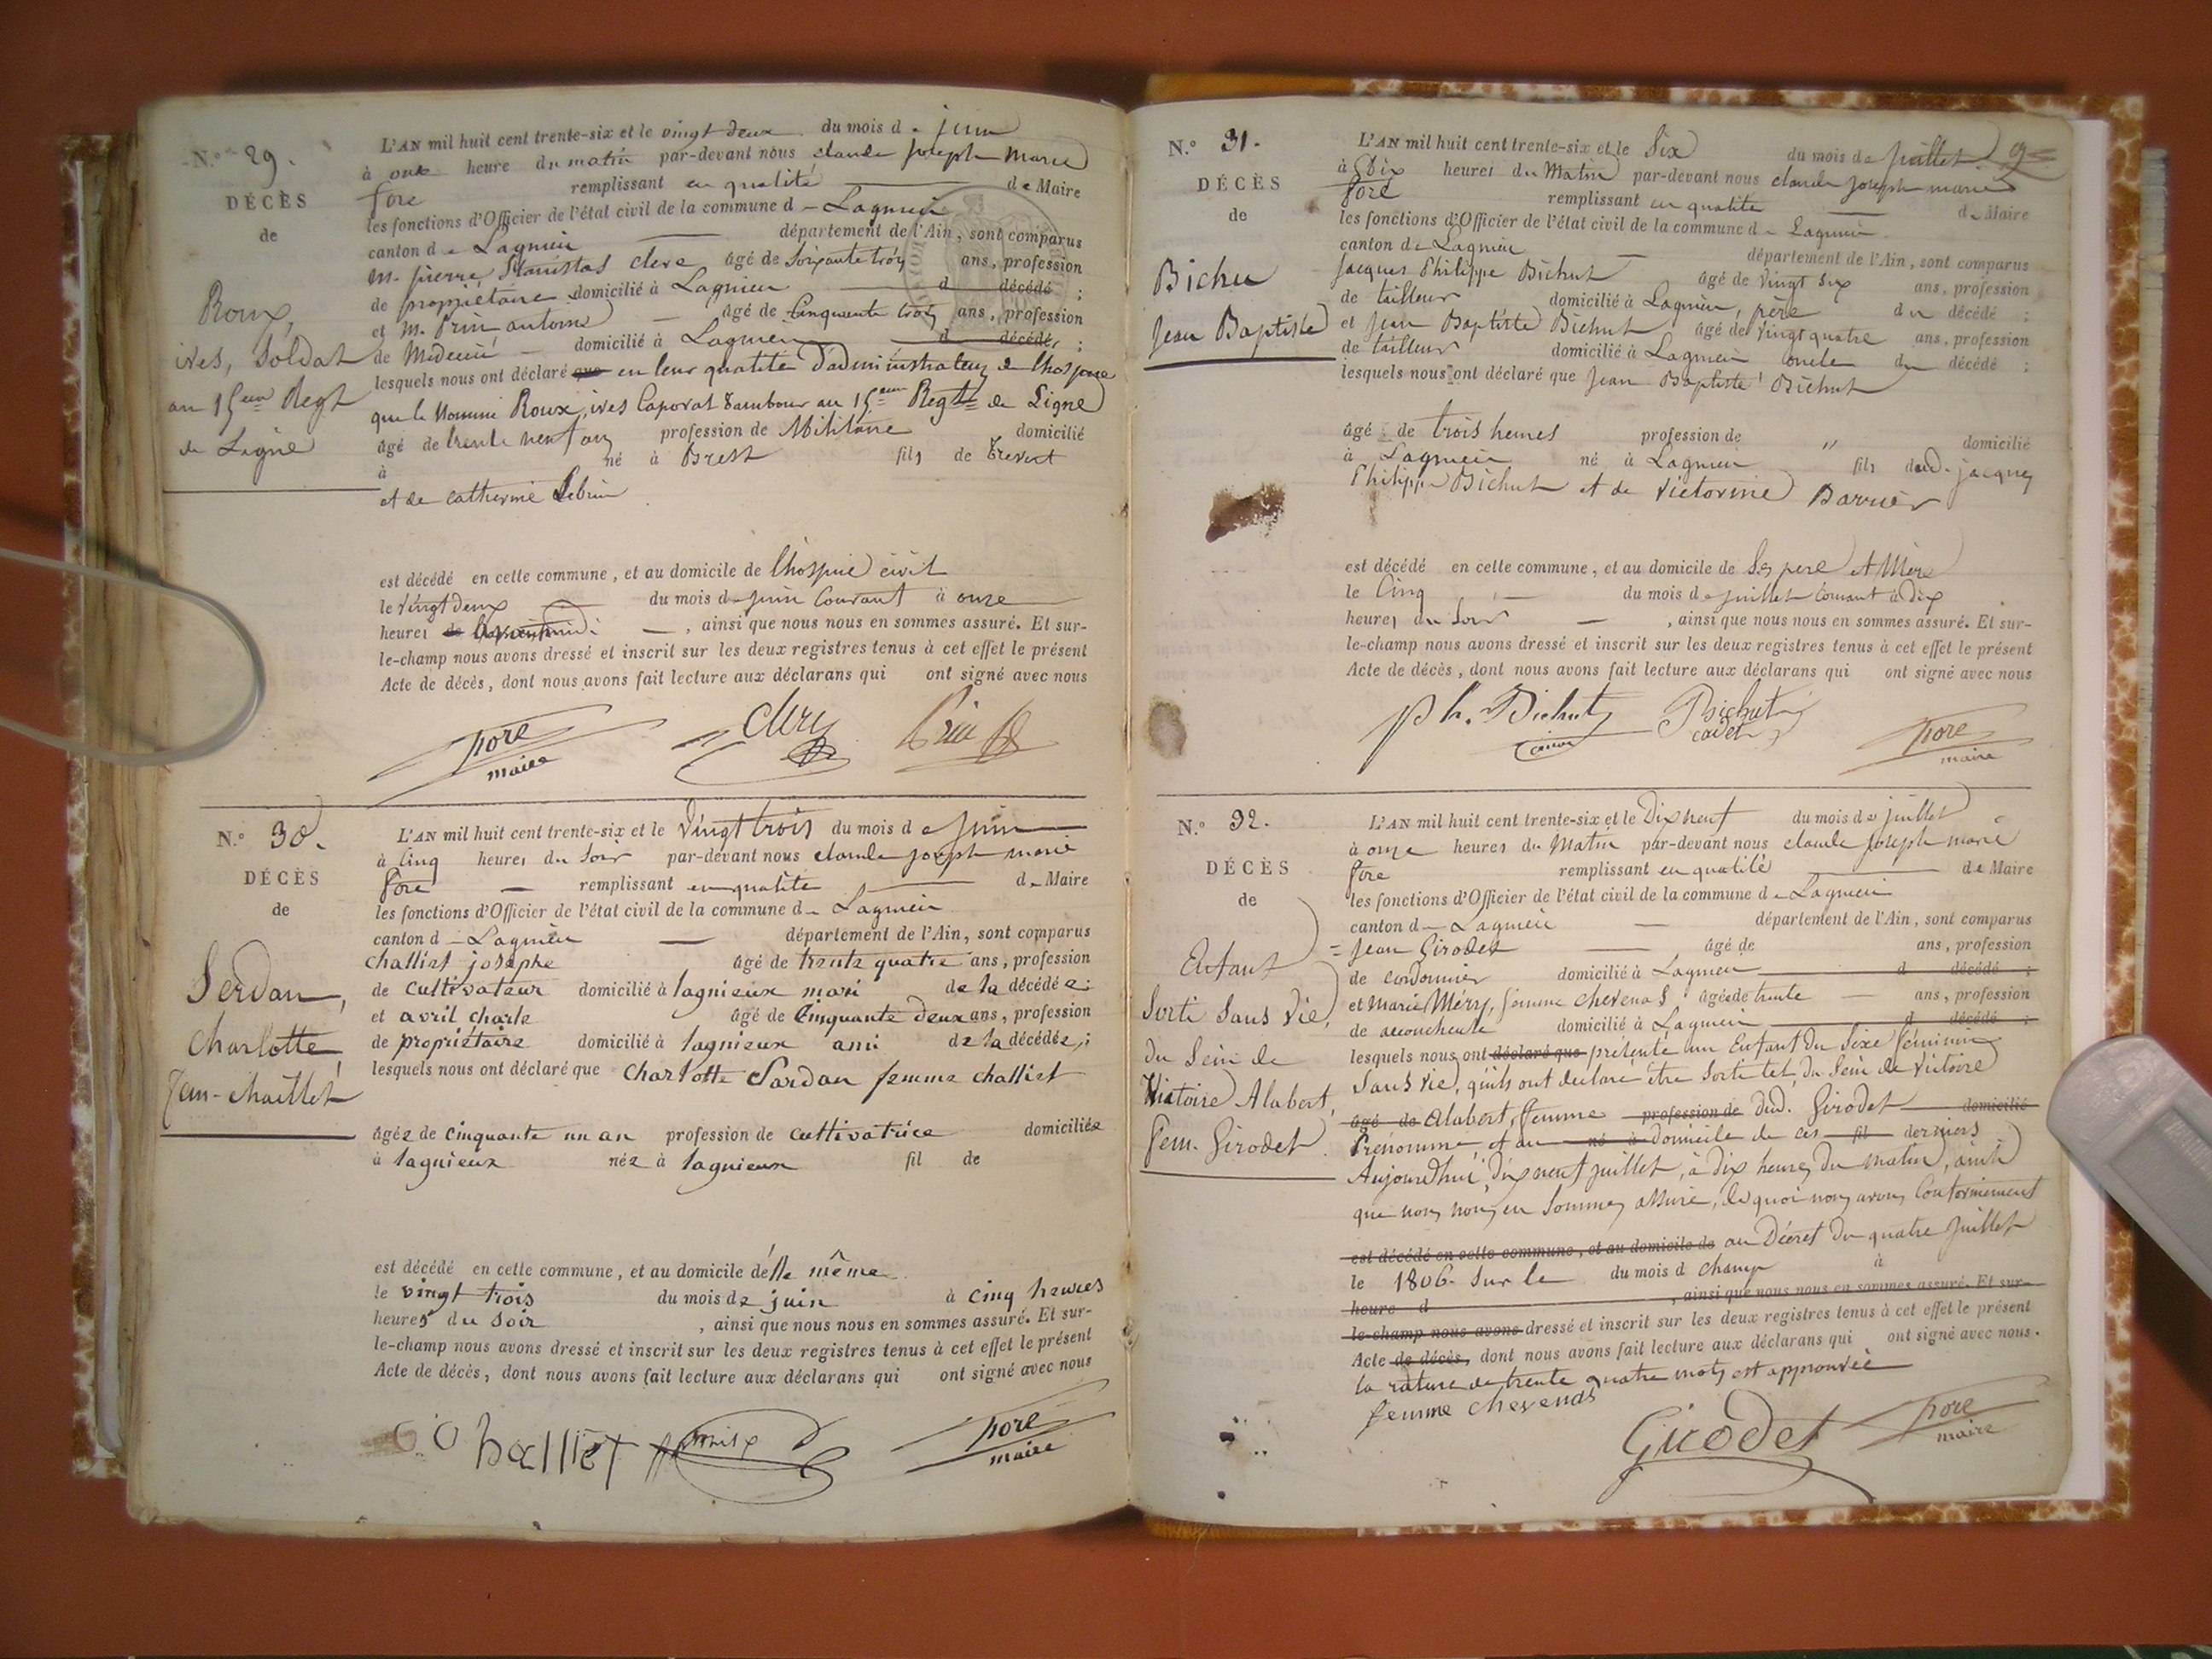 N.° 29.
DÉCÈS
de
Roux,
ives, Soldat
au 15eme Regt
de Ligne
L'AN mil huit cent trente-six et le vingt deux du mois de juin
à onze heure du matin par-devant nous claude joseph Marie
fore remplissant en qualité de Maire
les fonctions d'Officier de l'état civil de la commune de Lagnieu
canton de Lagnieu département de l'Ain, sont comparus
M. pierre Stanislas clere âgé de Soixante troi ans, profession
de propriétaire domicilié à Lagnieu d décédé ;
et M. Prin antoine âgé de Cinquante trois ans, profession
de Medecin domicilié à Lagnieu d décédé ;
lesquels nous ont déclaré que en leur qualité d'administrateurs de lhospice
que le Nommé Roux, ives Caporal Tambour au 15eme Regt de Ligne
âgé de trente neuf ans profession de Militaire domicilié
à né à Brest fils de Trevert
et de catherine Lebrun
est décédé en cette commune, et au domicile de lhospice civil
le vingt deux du mois de juin Courant à onze
heures de avant midi, ainsi que nous nous en sommes assuré. Et sur-
le-champ nous avons dressé et inscrit sur les deux registres tenus à cet effet le présent
Acte de décès, dont nous avons fait lecture aux déclarans qui ont signé avec nous
fore
maire
Prin
N.° 30.
DÉCÈS
de
Serdan,
Charlotte,
fem-chaillet
L'AN mil huit cent trente-six et le Vingt trois du mois de juin
à cinq heures du Soir par-devant nous claude joseph marie
fore remplissant en qualité de Maire
les fonctions d'Officier de l'état civil de la commune de Lagnieu
canton de Lagnieu département de l'Ain, sont comparus
challiet josephe âgé de trente quatre ans, profession
de cultivateur domicilié à lagnieux mari de la décédée;
et avril charle âgé de Cinquante deux ans, profession
de propriétaire domicilié à lagnieux ami de la décédée;
lesquels nous ont déclaré que Charlotte Sardan femme challiet
âgée de cinquante un an profession de cultivatrice domiciliée
à lagnieux née à lagnieux fil de
est décédé en cette commune, et au domicile d'elle même
le vingt trois du mois de juin à cinq heures
heures du soir, ainsi que nous nous en sommes assuré. Et sur-
le-champ nous avons dressé et inscrit sur les deux registres tenus à cet effet le présent
Acte de décès, dont nous avons fait lecture aux déclarans qui ont signé avec nous
Challiet
fore
maire
N.° 31.
DÉCÈS
de
Bichu
Jean Baptiste
L'AN mil huit cent trente-six et le Six du mois de juillet
à Dix heures du Matin par-devant nous claude joseph marie
fore remplissant en qualité de Maire
les fonctions d'Officier de l'état civil de la commune de Lagnieu
canton de Lagnieu département de l'Ain, sont comparus
Jacques Philippe Bichut âgé de vingt six ans, profession
de tailleur domicilié à Lagnieu, père du décédé ;
et Jean Baptiste Bichut âgé de vingt quatre ans, profession
de tailleur domicilié à Lagnieu oncle du décédé ;
lesquels nous ont déclaré que Jean Baptiste Bichut
âgé de trois heures profession de " domicilié
à Lagnieu né à Lagnieu fils dud. jacques
Philippe Bichut et de Victorine Barrier
est décédé en cette commune, et au domicile de Ses pere et Mère
le Cinq du mois de juillet Courant à dix
heures du Soir, ainsi que nous nous en sommes assuré. Et sur-
le-champ nous avons dressé et inscrit sur les deux registres tenus à cet effet le présent
Acte de décès, dont nous avons fait lecture aux déclarans qui ont signé avec nous
ph. Bichut
Bichut
cadet
fore
maire
N.° 32.
DÉCÈS
de
Enfant
Sorti Sans Vie,
du Sein de
Victoire Alabert,
fem. Girodet
L'AN mil huit cent trente-six et le Dix neuf du mois de juillet
à onze heures du Matin par-devant nous claude joseph marie
fore remplissant en qualité de Maire
les fonctions d'Officier de l'état civil de la commune de Lagnieu
canton de Lagnieu département de l'Ain, sont comparus
Jean Girodet âgé de ans, profession
de cordonnier domicilié à Lagnieu d décédé ;
et Marie Méry, femme chevenas âgée de trente ans, profession
de accoucheuse domicilié à Lagnieu d décédé ;
lesquels nous ont déclaré que présenté un Enfant du Sexe féminin
Sans Vie, qu'ils ont declaré être Sorti tel, du Sein de Victoire
âgé de Alabert, femme profession de dud. Girodet domicilié
Prénommé, et au né à domicile de ces fil derniers
Aujourdhui, dix neuf juillet, à dix heures du Matin, ainsi
que nous nous en Sommes assuré, de quoi nous avons Conformément
est décédé en cette commune, et au domicile de au Décret du quatre Juillet
le 1806. Sur le du mois d champ à
heure d, ainsi que nous nous en sommes assuré. Et sur-
le-champ nous avons dressé et inscrit sur les deux registres tenus à cet effet le présent
Acte de décès, dont nous avons fait lecture aux déclarans qui ont signé avec nous.
la rature de trente quatre mots est approuvée
femme chevenas
Girodet
fore
maire